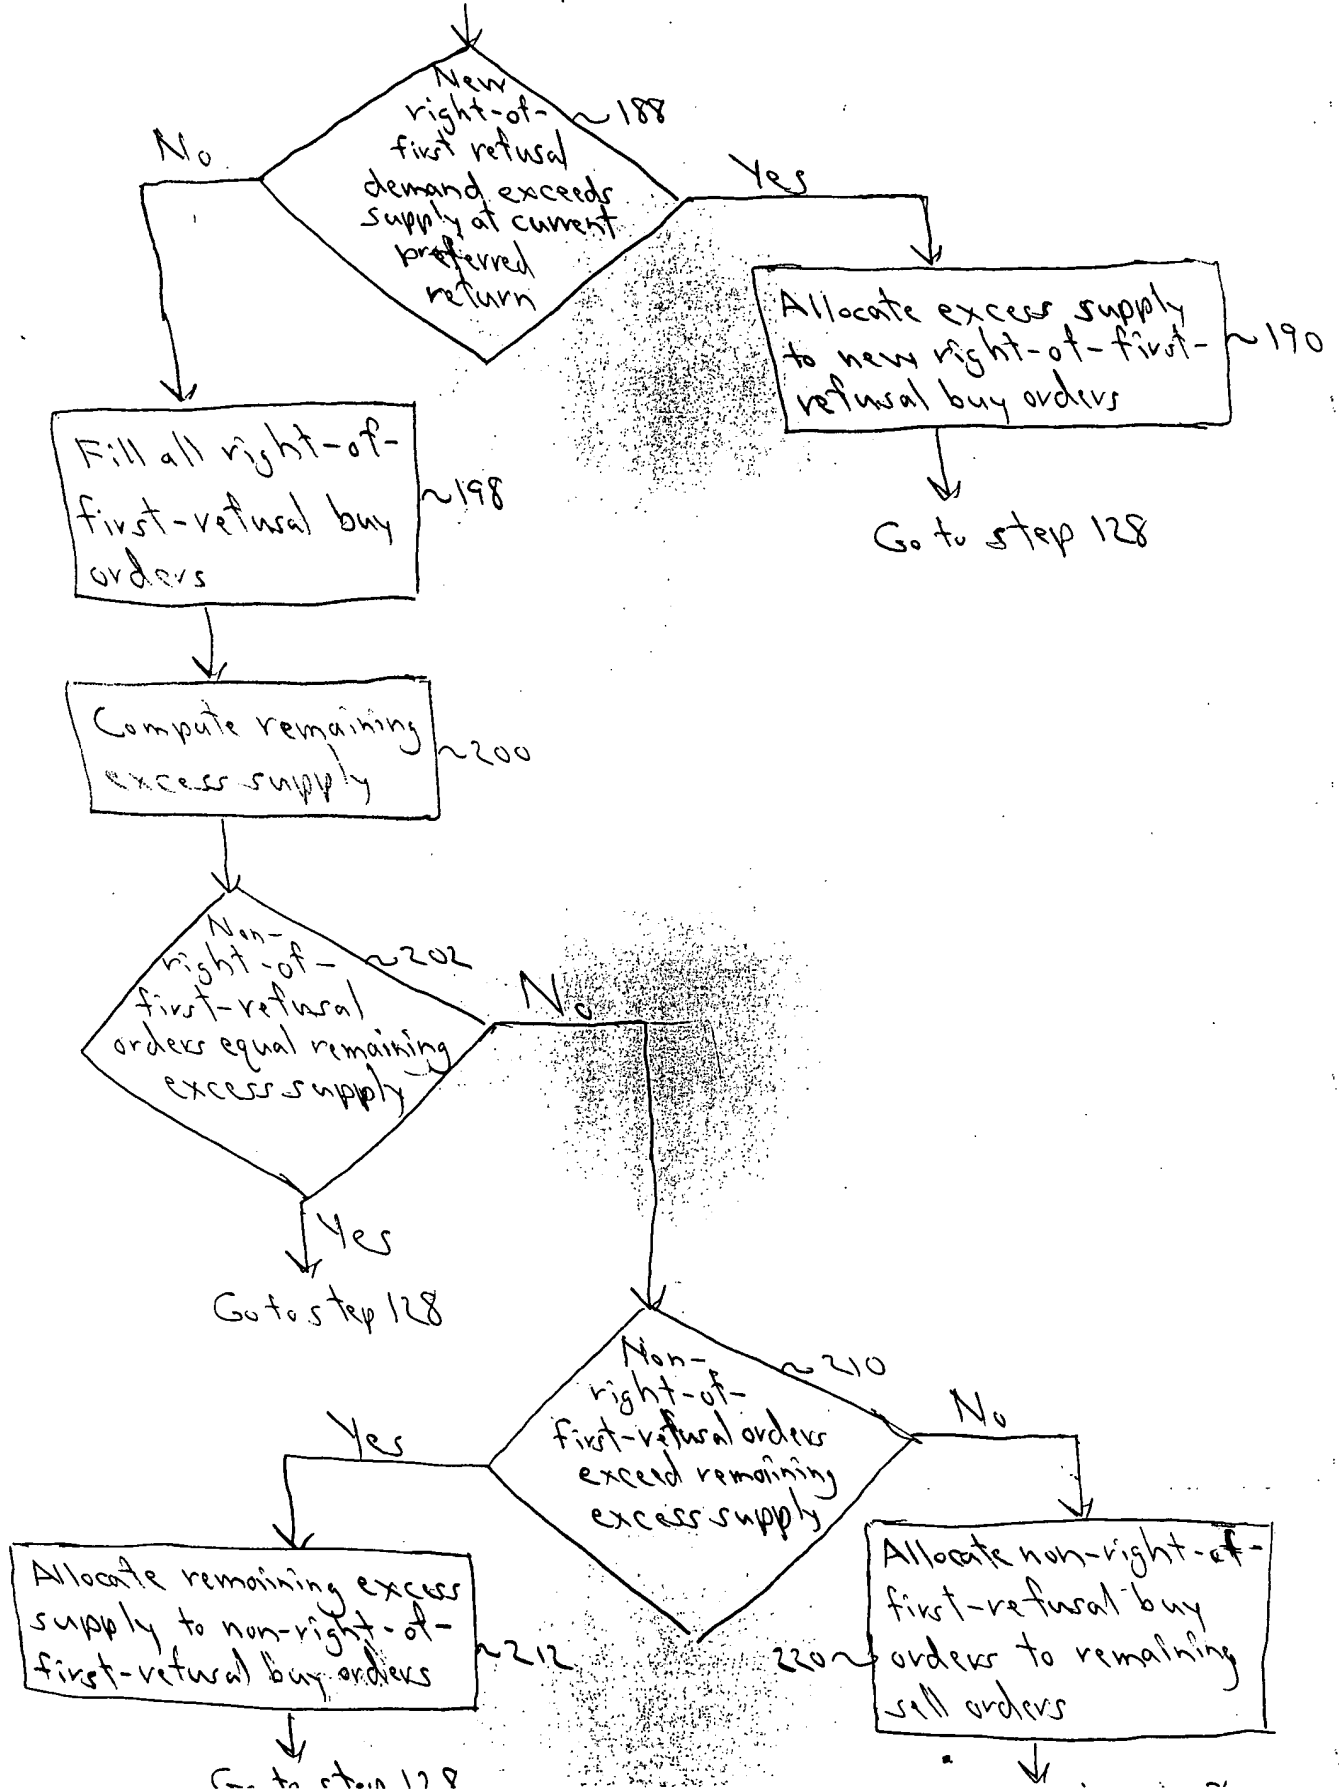 New
right-of-
first refusal
demand exceeds
supply at current
preferred
return
~188
No
Yes
Allocate excess supply
to new right-of-first-
refusal buy orders
~190
Go to step 128
Fill all right-of-
first-refusal buy
orders
~198
Compute remaining
excess supply
~200
Non-
right-of-
first-refusal
orders equal remaining
excess supply
~202
No
Yes
Go to step 128
Non-
right-of-
first-refusal orders
exceed remaining
excess supply
~210
Yes
No
Allocate remaining excess
supply to non-right-of-
first-refusal buy orders
~212
220~
Allocate non-right-of-
first-refusal buy
orders to remaining
sell orders
Go to step 128